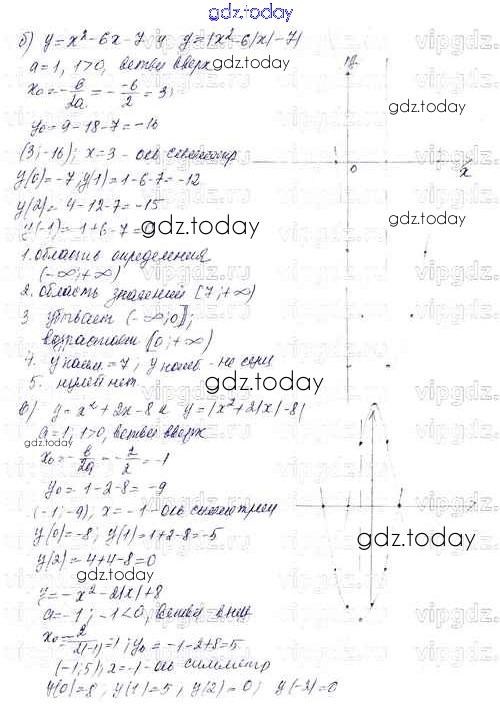 б) y=x²-6x-7 и y=|x²-6|x|-7|
a=1, 1>0, ветви вверх
x₀=-b/2a=-(-6)/2=3;
y₀=9-18-7=-16
(3;-16); x=3-ось симметр
y(0)=-7; y(1)=1-6-7=-12
y(2)=4-12-7=-15
y(-1)=1+6-7=0
1. область определения
(-∞;+∞)
2. область значений [7;+∞)
3 убывает (-∞;0];
возрастает [0;+∞)
4. y наим.=7; y наиб.-не сущ
5. нулей нет.
в) y=x²+2x-8 и y=|x²+2|x|-8|
a=1, 1>0, ветви вверх
x₀=-b/2a=-2/2=-1
y₀=1-2-8=-9
(-1;-9), x=-1-ось симметрии
y(0)=-8; y(1)=1+2-8=-5
y(2)=4+4-8=0
y=-x²-2|x|+8
a=-1; -1<0, ветви вниз
x₀=-2/2(-1)=1; y₀=-1-2+8=5
(-1;5); x=-1-ось симметр
y(0)=8; y(1)=5; y(2)=0; y(-2)=0
y
0
x
gdz.today
gdz.today
gdz.today
gdz.today
gdz.today
gdz.today
gdz.today
gdz.today
gdz.today
gdz.today
vipgdz.ru